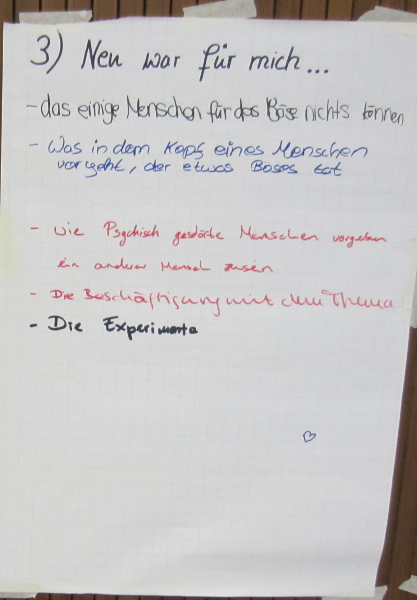 3) Neu war für mich...
- das einige Menschen für das Böse nichts können
- Was in dem Kopf eines Menschen
vorgeht, der etwas Böses tut
- wie Psychisch gestörte Menschen vorgeben
ein anderer Mensch zusein
- Die Beschäftigung mit dem Thema
- Die Experimente